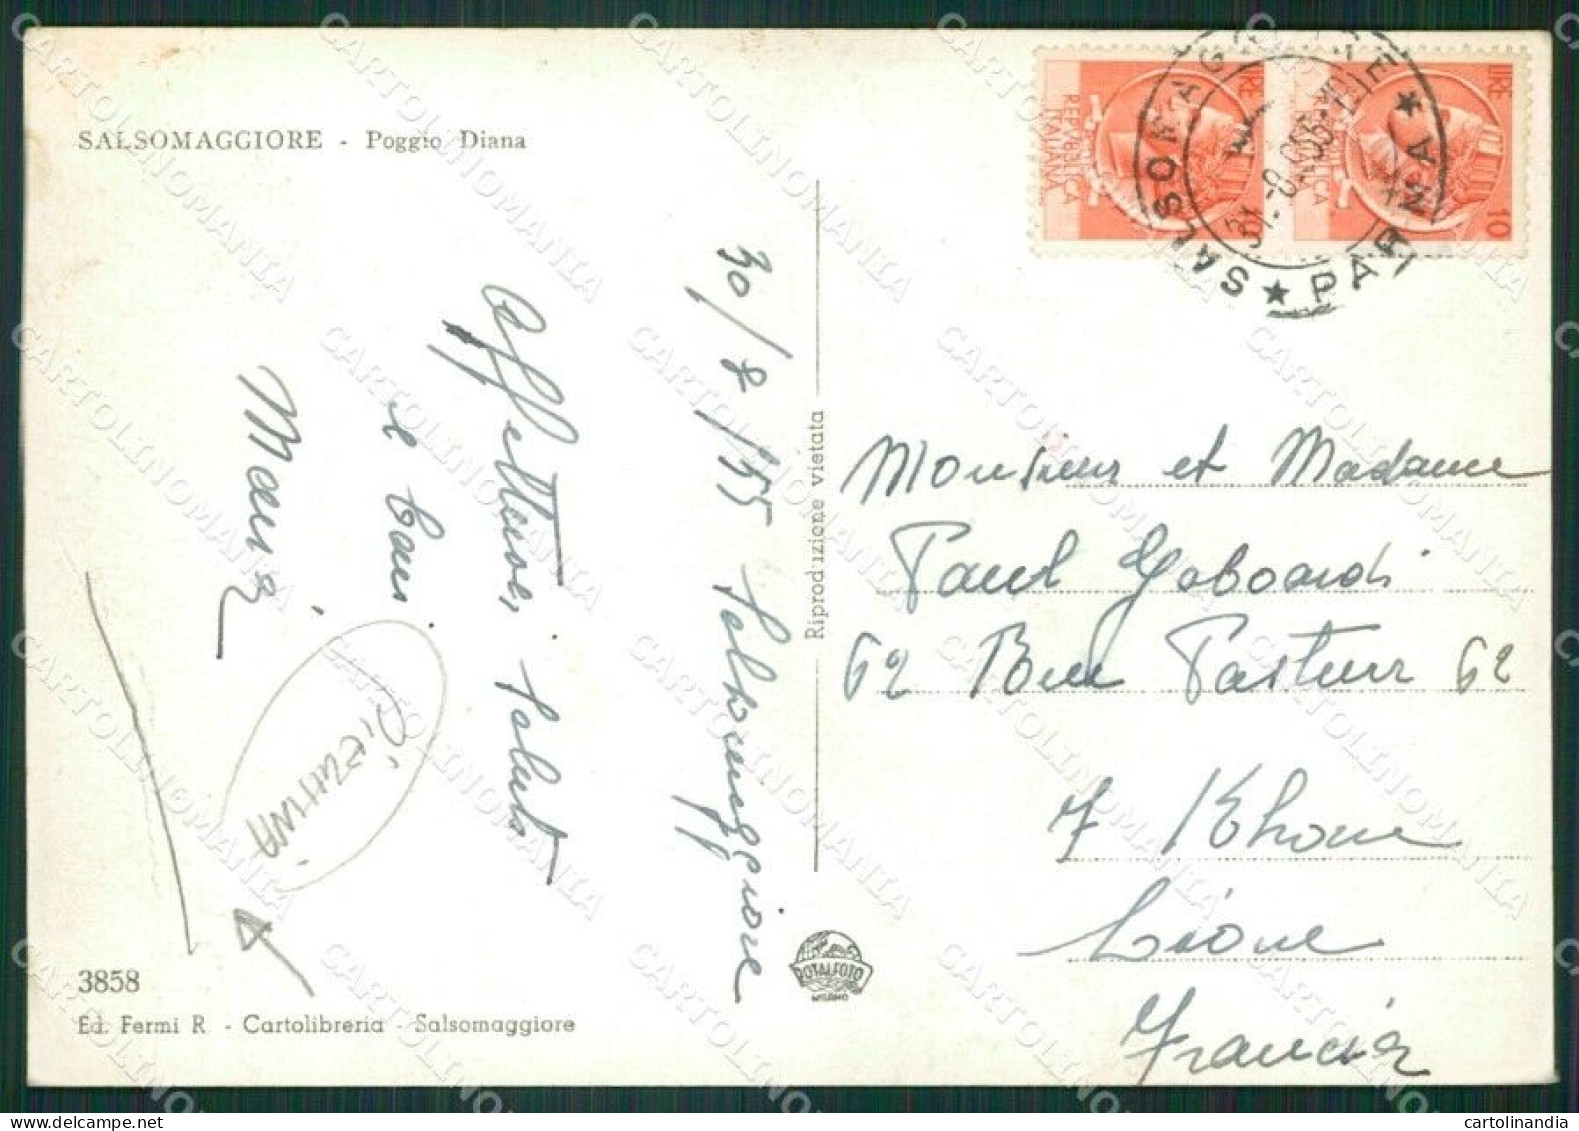 SALSOMAGGIORE - Poggio Diana
30/8/55 Salsomaggiore
Affettuosi saluti
e baci
Mari
PIERINA
3858
Ed. Fermi R. - Cartolibreria - Salsomaggiore
Riproduzione vietata
ROTALFOTO
MILANO
LIRE 10
REPVBBLICA
ITALIANA
LIRE 10
SALSOMAGGIORE ★ PARMA ★
31.-8.955-
Monsieur et Madame
Paul Gaboardi
62 Rue Pasteur 62
7 Rhone
Lione
Francia
CARTOLINOMANIA
cartolinandia